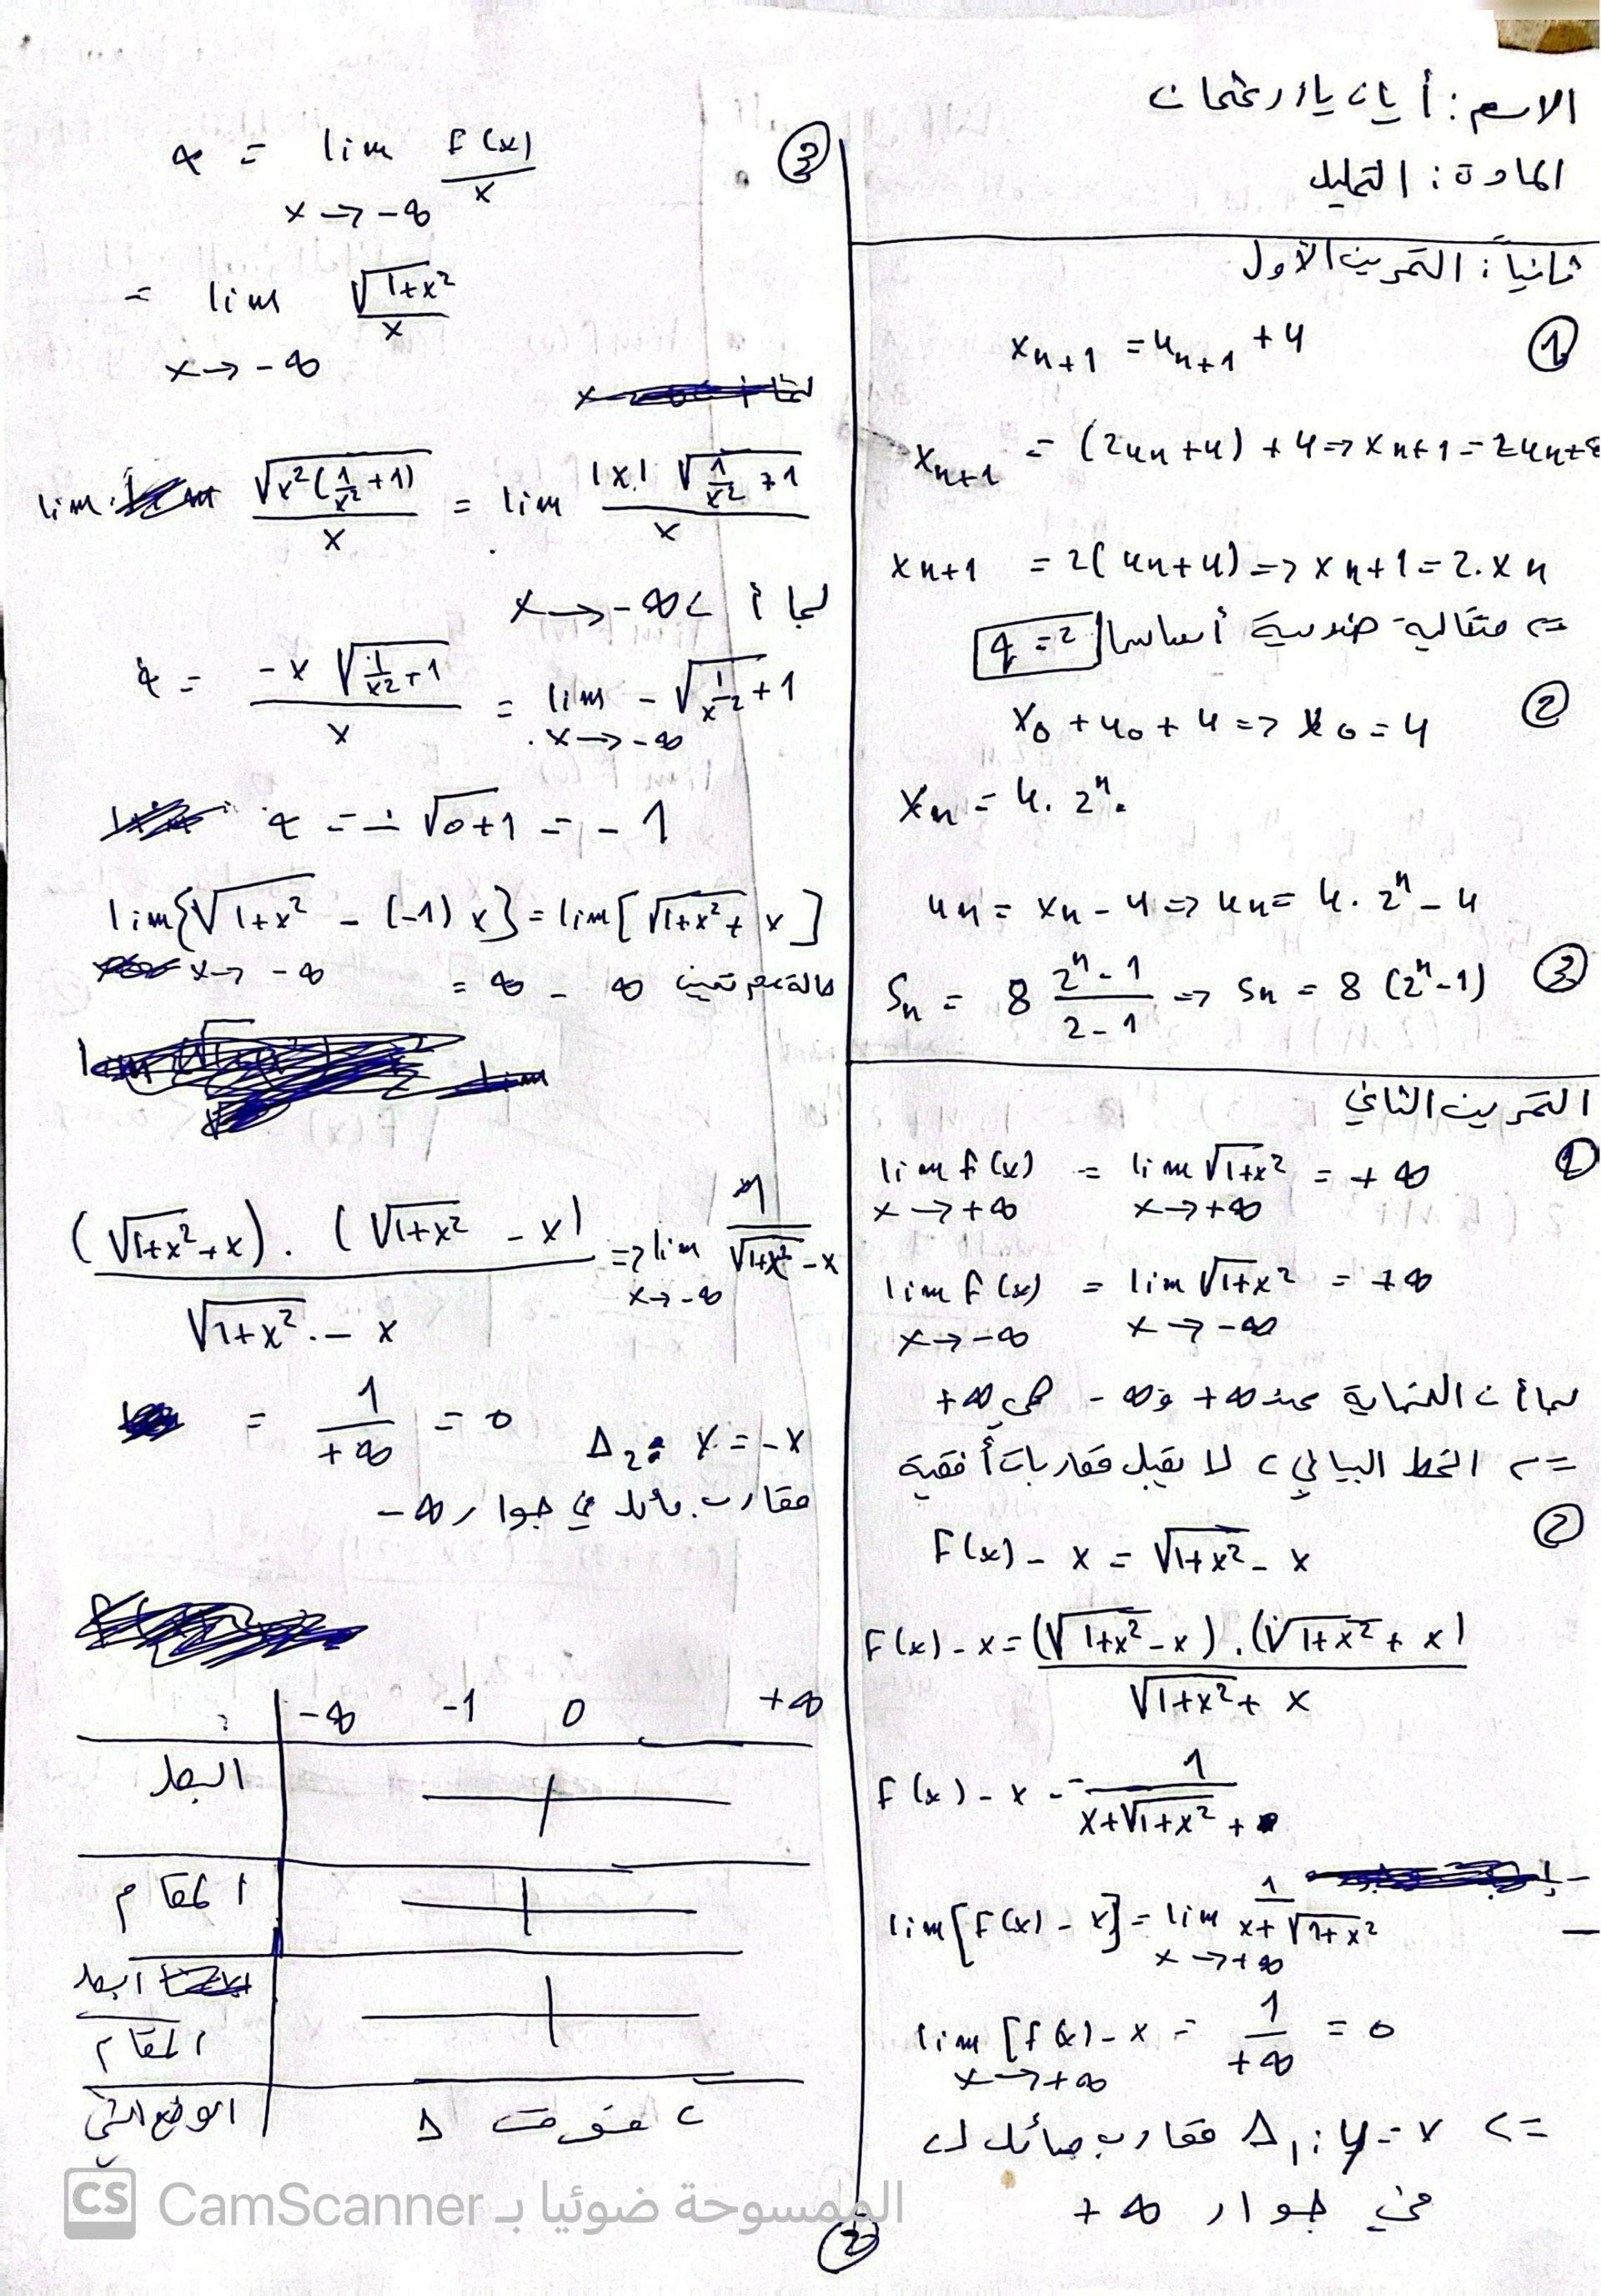 الاسم: أيان ياار عثمان
المادة: التحليل
ثانياً: التمرين الأول
① x_{n+1} = u_{n+1} + 4
x_{n+1} = (2u_n + 4) + 4 => x_{n+1} = 2u_n + 8
x_{n+1} = 2(u_n + 4) => x_{n+1} = 2 . x_n
=> متتالية هندسية أساسها q = 2
② x_0 + u_0 + 4 => x_0 = 4
x_n = 4 . 2^n .
u_n = x_n - 4 => u_n = 4 . 2^n - 4
③ S_n = 8 \frac{2^n - 1}{2 - 1} => S_n = 8 (2^n - 1)
التمرين الثاني
① lim f(x) = lim √(1+x²) = +∞
x → +∞ x → +∞
lim f(x) = lim √(1+x²) = +∞
x → -∞ x → -∞
بما أن النهاية عند +∞ و -∞ هي +∞
=> الخط البياني C لا يقبل مقاربات أفقية
② f(x) - x = √(1+x²) - x
f(x) - x = \frac{(√(1+x²) - x) . (√(1+x²) + x)}{√(1+x²) + x}
f(x) - x = \frac{1}{x + √(1+x²) +}
lim [f(x) - x] = lim \frac{1}{x + √(1+x²)}
x → +∞
lim [f(x) - x = \frac{1}{+∞} = 0
x → +∞
=> Δ_1 : y = x مقارب مائل لـ C
في جوار +∞
③ a = lim \frac{f(x)}{x}
x → -∞
= lim \frac{√(1+x²)}{x}
x → -∞
lim \frac{√(x²(\frac{1}{x²} + 1))}{x} = lim \frac{|x| √(\frac{1}{x²} + 1)}{x}
بما أ x → -∞
a = \frac{-x √(\frac{1}{x²} + 1)}{x} = lim - √(\frac{1}{x²} + 1)
x → -∞
a = - √(0+1) = - 1
lim {√(1+x²) - (-1) x} = lim [√(1+x²) + x]
x → -∞ = ∞ - ∞ حالة عدم تعيين
\frac{(√(1+x²) + x) . (√(1+x²) - x)}{√(1+x²) - x} => lim \frac{1}{√(1+x²) - x}
x → -∞
= \frac{1}{+∞} = 0 Δ_2 : y = -x
مقارب مائل في جوار -∞
-∞ -1 0 +∞
البسط
المقام
البسط
المقام
الوضع النسبي C فوق Δ
②
CS CamScanner الممسوحة ضوئيا بـ